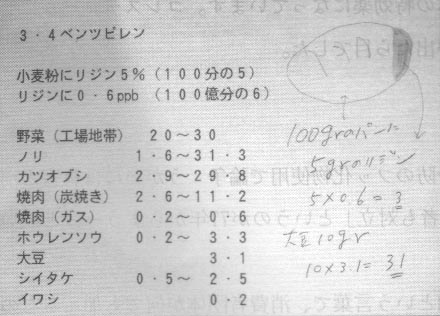 3・4ベンツピレン
小麦粉にリジン5%(100分の5)
リジンに0・6ppb(100億分の6)
野菜(工場地帯) 20~30
ノリ 1・6~31・3
カツオブシ 2・9~29・8
焼肉(炭焼き) 2・6~11・2
焼肉(ガス) 0・2~ 0・6
ホウレンソウ 0・2~ 3・3
大豆 3・1
シイタケ 0・5~ 2・5
イワシ 0・2
100grのパンに
5grのリジン
5×0.6=3
大豆10gr
10×3.1=31